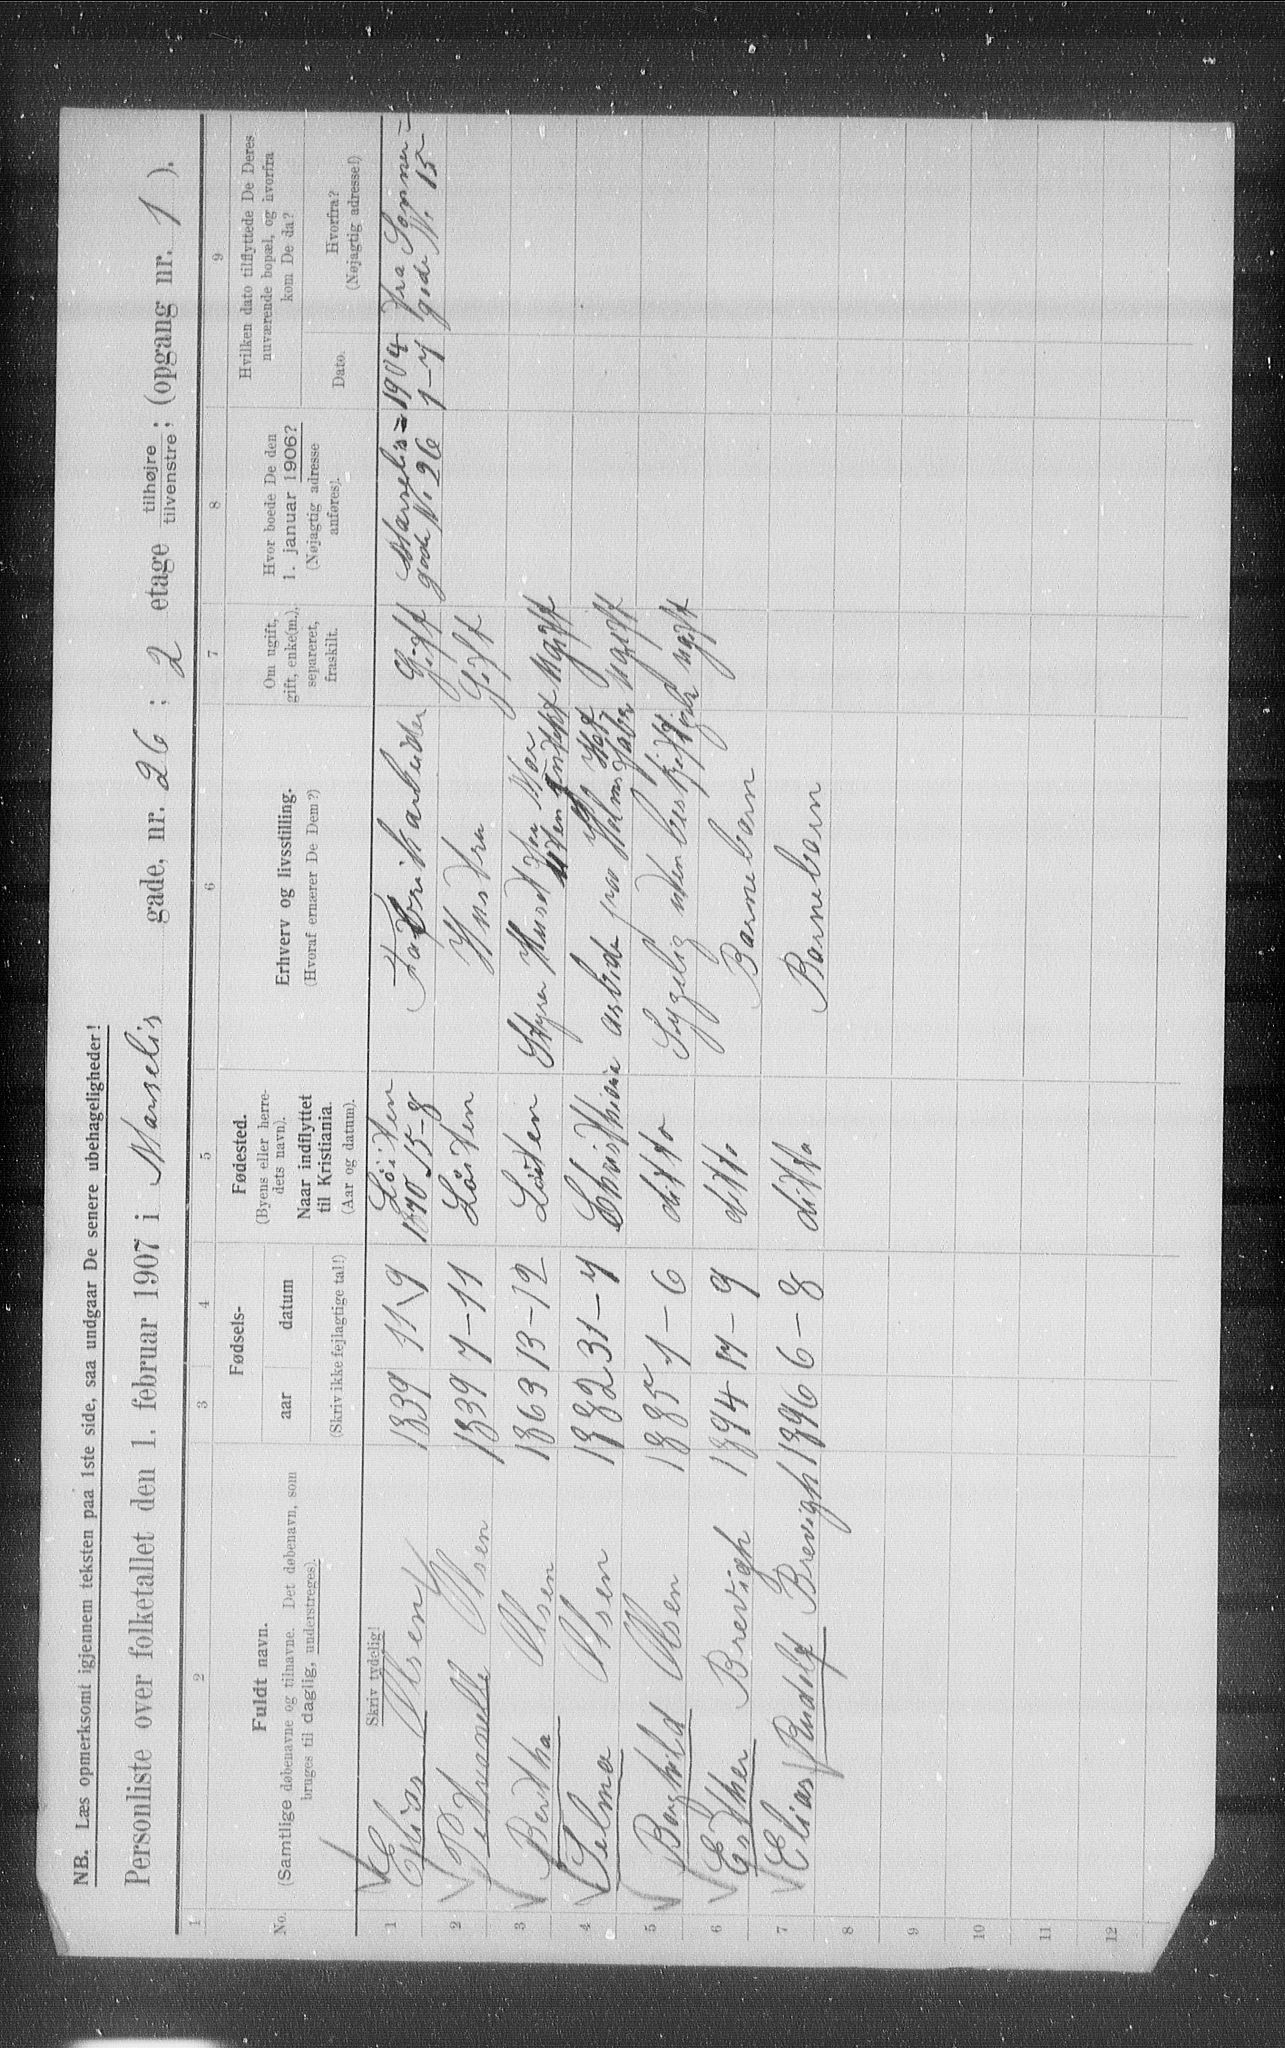 NB. Læs opmerksomt igjennem teksten paa 1ste side, saa undgaar De senere ubehageligheder!
Personliste over folketallet den 1. februar 1907 i Marselis gade, nr. 26 ; 2 etage tilhøjre tilvenstre; (opgang nr. 1 ).
1 2 3 4 5 6 7 8 9
No.
Fuldt navn.
(Samtlige døbenavne og tilnavne. Det døbenavn, som
bruges til daglig, understreges).
Fødsels-
aar datum
(Skriv ikke fejlagtige tal!)
Fødested.
(Byens eller herre-
dets navn).
Naar indflyttet
til Kristiania.
(Aar og datum).
Erhverv og livsstilling.
(Hvoraf ernærer De Dem?)
Om ugift,
gift, enke(m.),
separeret,
fraskilt.
Hvor boede De den
1. januar 1906?
(Nøjagtig adresse
anføres).
Hvilken dato tilflyttede De Deres
nuværende bopæl, og hvorfra
kom De da?
Dato.
Hvorfra?
(Nøjagtig adresse!)
Skriv tydelig!
1 Elias Olsen 1839 11\9 Löiten 1870 15-8 Fabrikarbeider Gift Marselis= gade N. 26 1904 1-4 fra Sommer- gade N. 15
2 Petranelle Olsen 1839 7-11 Löiten Hustru Gift
3 Bertha Olsen 1863 13-12 Löiten Styrer Huset for Mor uden Indtekt Ugift
4 Selma Olsen 1882 31-7 Christhiania arbeide paa Holms Fabr Ugift
5 Borghild Olsen 1885 1-6 ditto Sygelig uden beskjeftigelse ugift
6 Esther Brevigh 1894 17-9 ditto Barnebarn
7 Elias Rudolf Brevigh 1896 6-8 ditto Barnebarn
8
9
10
11
12